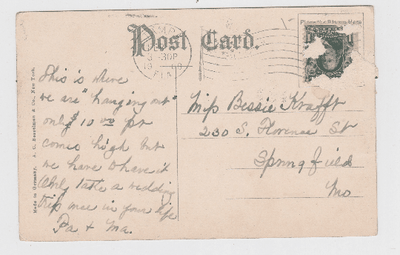 Post Card.
This is where
we are "hanging out"
only 10.00 pr
comes high but
we have to have it
Only take a wedding
trip once in your life
Pa & Ma.
Miss Bessie Krafft
230 S. Florence St
Springfield
Mo
Made in Germany. A. C. & Co., New York.